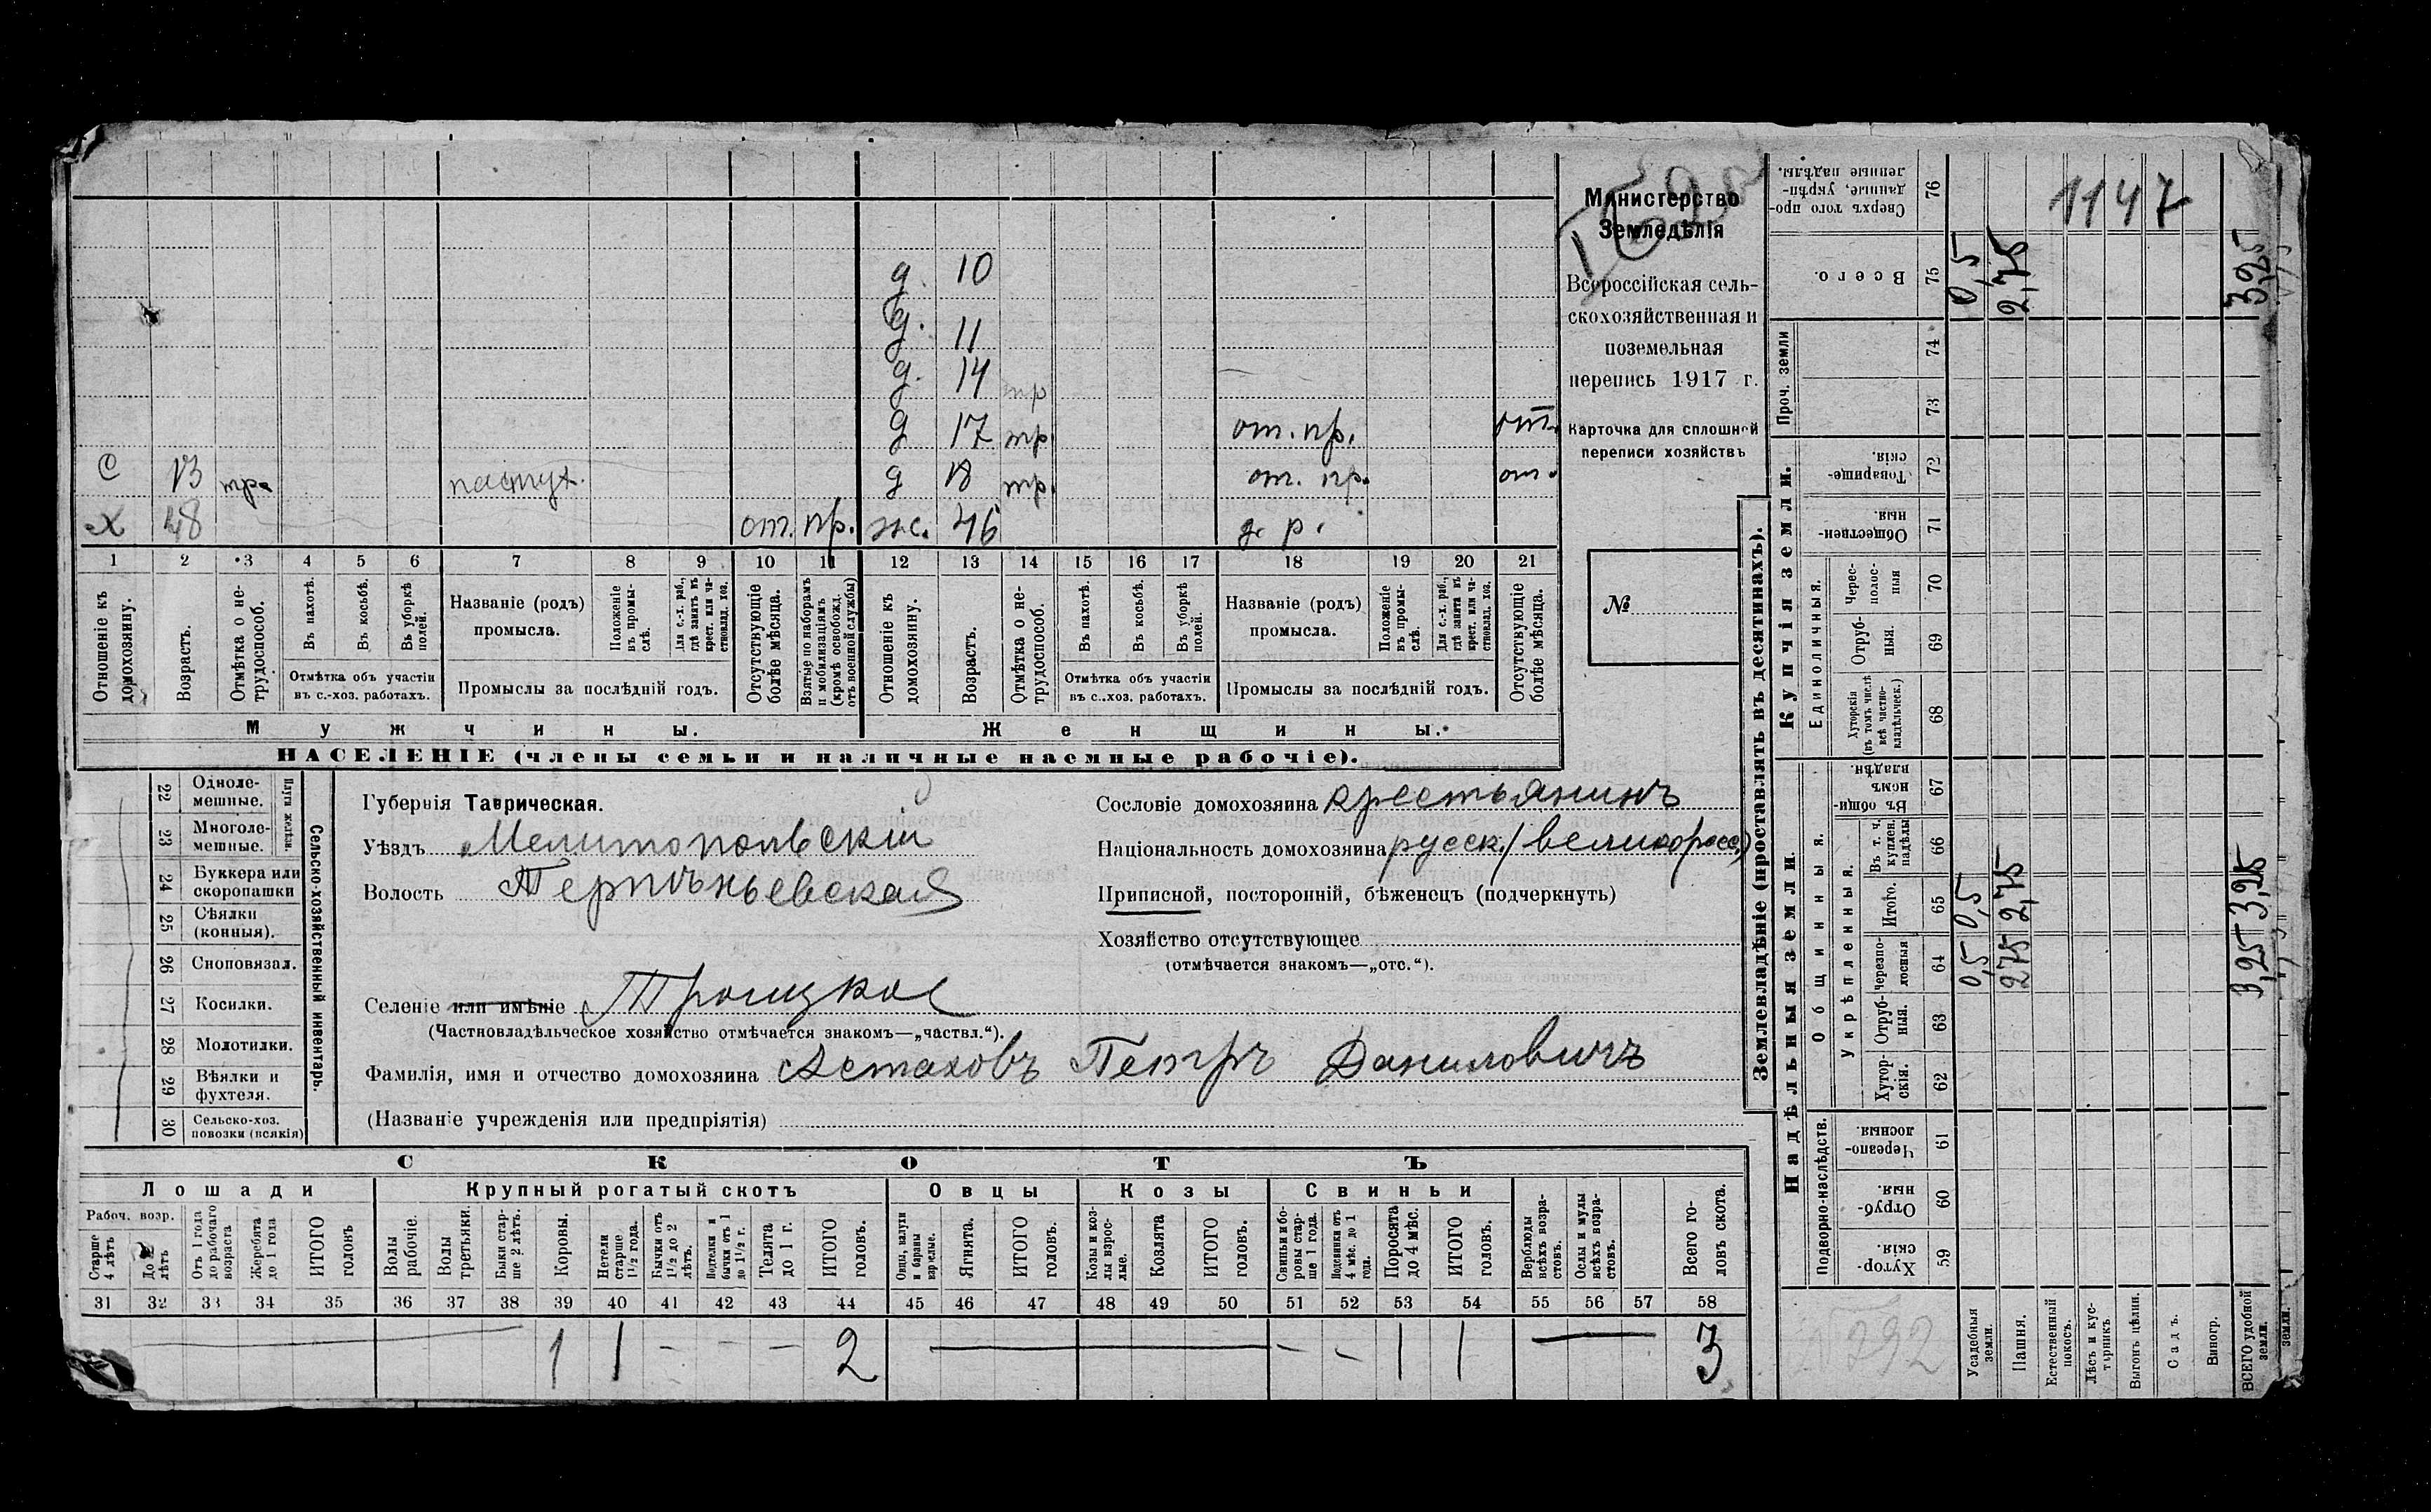 Министерство
Земледѣлія
Всероссійская сель-
скохозяйственная и
поземельная
перепись 1917 г.
Карточка для сплошной
переписи хозяйствъ
№
д. 10
д. 11
д. 14 тр
д 17 тр. от. пр. от.
С 13 тр. пастух. д 18 тр. от. пр. от.
Х 48 от. пр. ж. 46 д. р.
1 2 3 4 5 6 7 8 9 10 11 12 13 14 15 16 17 18 19 20 21
Отношеніе къ домохозяину.
Возрастъ.
Отмѣтка о не-трудоспособ.
Въ пахотѣ.
Въ косьбѣ.
Въ уборкѣ полей.
Отмѣтка объ участіи
въ с.-хоз. работахъ.
Названіе (родъ)
промысла.
Положеніе въ промы-слѣ.
Для с.-х. раб., гдѣ занятъ въ крест. или ча-стновлад. хоз.
Промыслы за послѣдній годъ.
Отсутствующіе болѣе мѣсяца.
Взятые по наборамъ и мобилизаціямъ (кромѣ освобожд. отъ военной службы)
Отношеніе къ домохозяину.
Возрастъ.
Отмѣтка о не-трудоспособ.
Въ пахотѣ.
Въ косьбѣ.
Въ уборкѣ полей.
Отмѣтка объ участіи
въ с.-хоз. работахъ.
Названіе (родъ)
промысла.
Положеніе въ промы-слѣ.
Для с.-х. раб., гдѣ занята въ крест. или ча-стновлад. хоз.
Промыслы за послѣдній годъ.
Отсутствующіе болѣе мѣсяца.
Мужчины. Женщины.
НАСЕЛЕНІЕ (члены семьи и наличные наемные рабочіе).
Сельско-хозяйственный инвентарь.
Плуги желѣзн.
22 Одноле-мешные.
23 Многоле-мешные.
24 Буккера или скоропашки
25 Сѣялки (конныя).
26 Сноповязал.
27 Косилки.
28 Молотилки.
29 Вѣялки и фухтеля.
30 Сельско-хоз. повозки (всякія)
Губернія Таврическая.
Уѣздъ Мелитопольскій
Волость Терпѣньевская
Селеніе или имѣніе Троицкое
(Частновладѣльческое хозяйство отмѣчается знакомъ—„частвл.“).
Фамилія, имя и отчество домохозяина Астаховъ Петръ Даниловичъ
(Названіе учрежденія или предпріятія)
Сословіе домохозяина крестьянинъ
Національность домохозяина русск. (великоросс.)
Приписной, посторонній, бѣженецъ (подчеркнуть)
Хозяйство отсутствующее
(отмѣчается знакомъ—„отс.“).
СКОТЪ
Лошади Крупный рогатый скотъ Овцы Козы Свиньи
Рабоч. возр.
Старше 4 лѣтъ
До 4 лѣтъ
Отъ 1 года до рабочаго возраста
Жеребята до 1 года
ИТОГО головъ
Волы рабочіе.
Волы третьяки.
Быки стар-ше 2 лѣтъ.
Коровы.
Нетели старше 1½ года.
Бычки отъ 1½ до 2 лѣтъ.
Подтелки и бычки отъ 1 до 1½ г.
Телята до 1 г.
ИТОГО головъ.
Овцы, валухи и бараны взрослые.
Ягнята.
ИТОГО головъ.
Козы и коз-лы взрос-лые.
Козлята
ИТОГО головъ.
Свиньи и бо-ровы стар-ше 1 года.
Подсвинки отъ 4 мѣс. до 1 года.
Поросята до 4 мѣс.
ИТОГО головъ.
Верблюды всѣхъ возра-стовъ.
Ослы и мулы всѣхъ возра-стовъ.
Всего го-ловъ скота.
31 32 33 34 35 36 37 38 39 40 41 42 43 44 45 46 47 48 49 50 51 52 53 54 55 56 57 58
1 1 - - - 2 - - 1 1 3
Землевладѣніе (проставлять въ десятинахъ).
Надѣльныя земли.
Купчія земли.
Проч. земли
Подворно-наслѣдств.
Общинныя.
Укрѣпленныя.
Единоличныя.
59 Хутор-скія.
60 Отруб-ныя.
61 Черезпо-лосныя
62 Хутор-скія.
63 Отруб-ныя.
64 Черезпо-лосныя
65 Итого.
66 Въ т. ч. куплен. надѣлы
67 Въ общи-номъ владѣн.
68 Хуторскія (въ томъ числѣ всѣ частно-владѣльческ.)
69 Отруб-ныя.
70 Черес-полос-ныя
71 Обществен-ныя.
72 Товарище-скія.
73
74
75 Всего.
76 Сверхъ того про-данные, укрѣп-ленные надѣлы.
1147
Усадебныя земли. 0,5 0,5 0,5
Пашня. 2,75 2,75 2,75
Естественный покосъ.
Лѣсъ и кус-тарникъ
Выгонъ цѣлин.
Садъ.
Виногр.
ВСЕГО удобной земли. 3,25 3,25 3,25
земли.